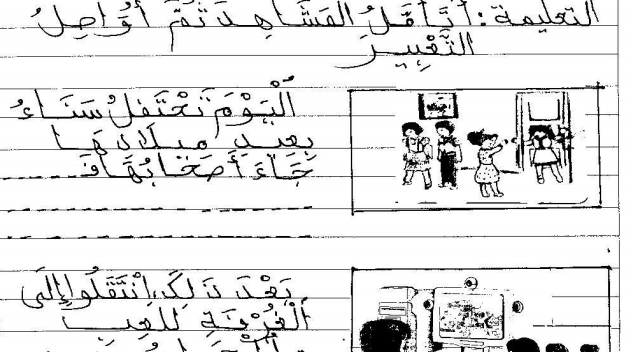 التعليمة: أَتَأَمَّلُ المَشَاهِدَ ثُمَّ أُوَاصِلُ
التَّعْبِيرَ
اَلْيَوْمَ تَحْتَفِلُ سَنَاءُ
بِعِيدِ مِيلَادِهَا
جَاءَ أَصْحَابُهَا فَـ
بَعْدَ ذَلِكَ اِنْتَقَلُوا إِلَى
الْغُرْفَةِ لِلَّعِبِ